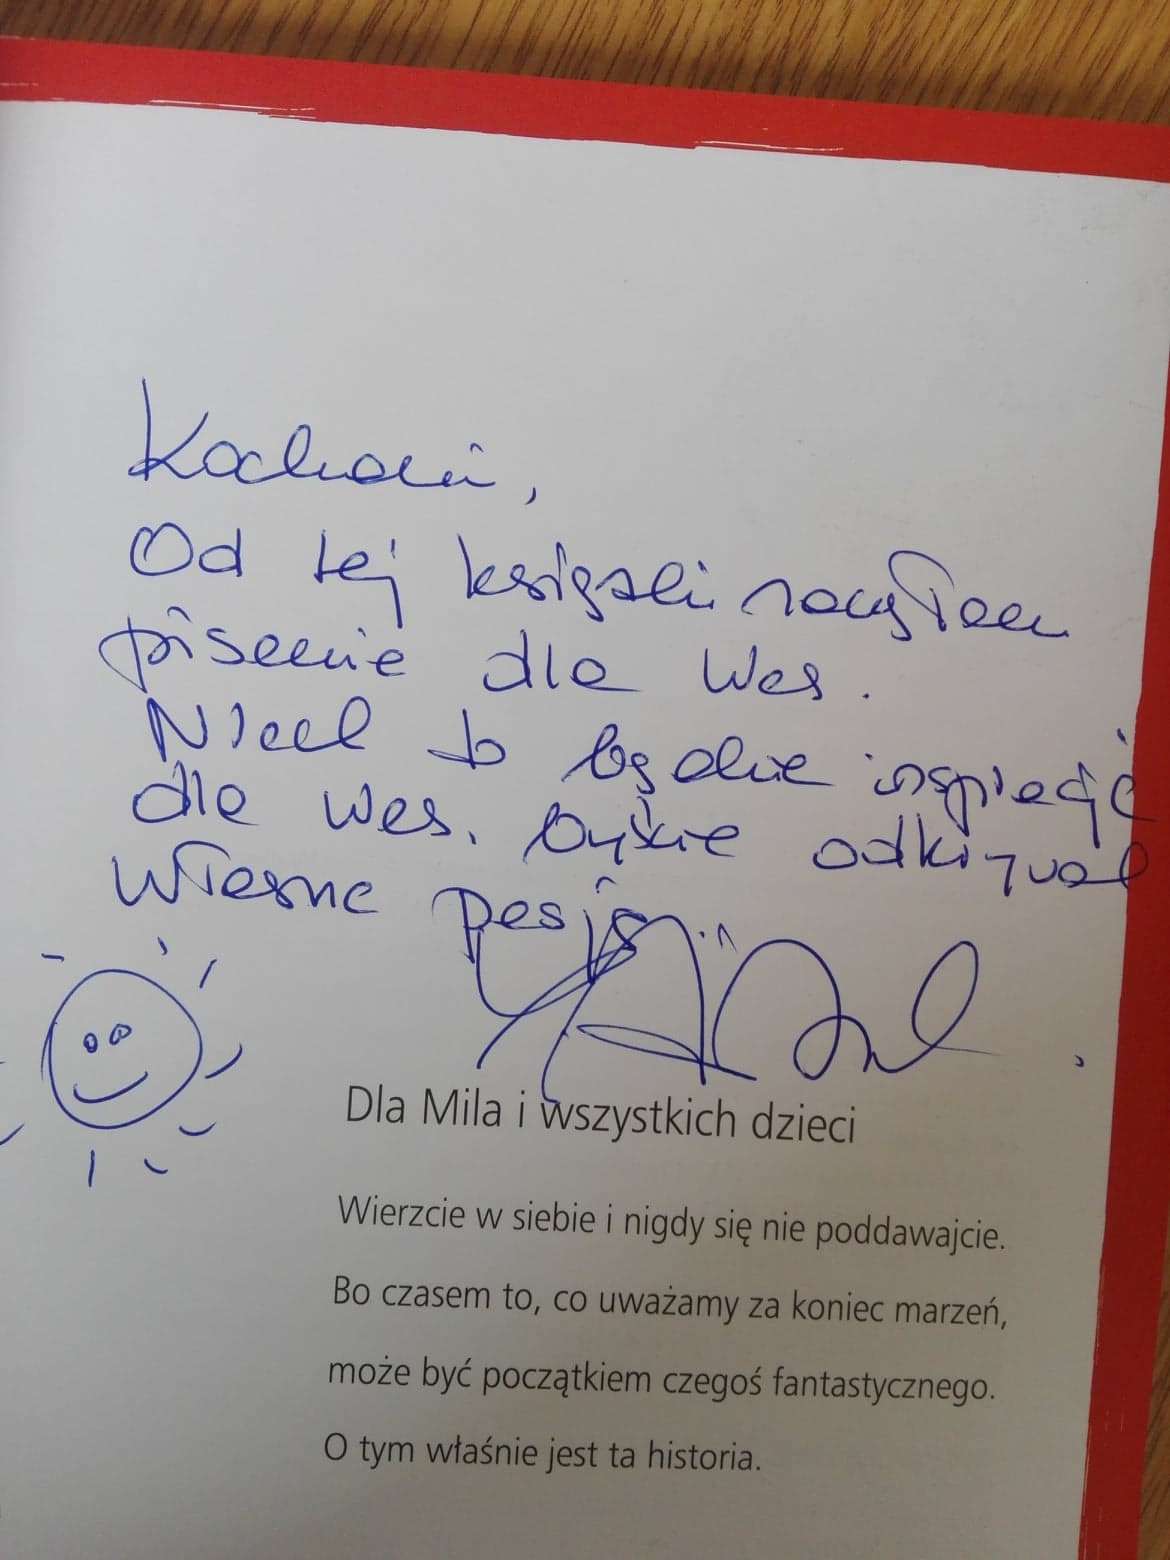 Kochani,
Od tej książki zaczęłam
pisanie dla Was.
Niech to będzie inspiracją
dla Was, byście odkrywali
własne pasje
Dla Mila i wszystkich dzieci
Wierzcie w siebie i nigdy się nie poddawajcie.
Bo czasem to, co uważamy za koniec marzeń,
może być początkiem czegoś fantastycznego.
O tym właśnie jest ta historia.